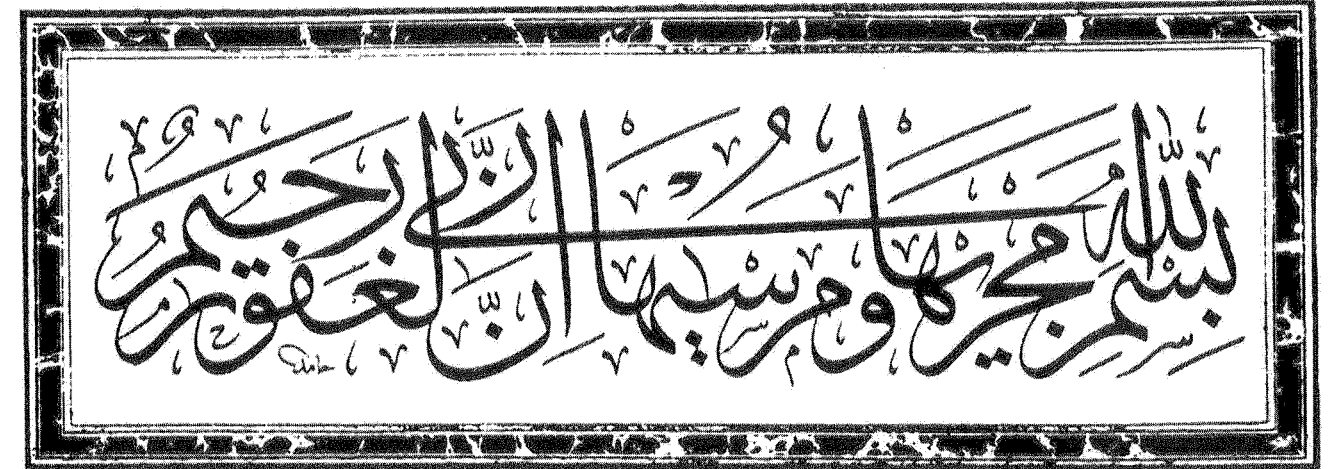 بسم الله مجريها ومرسيها ان ربى لغفور رحيم
حامد